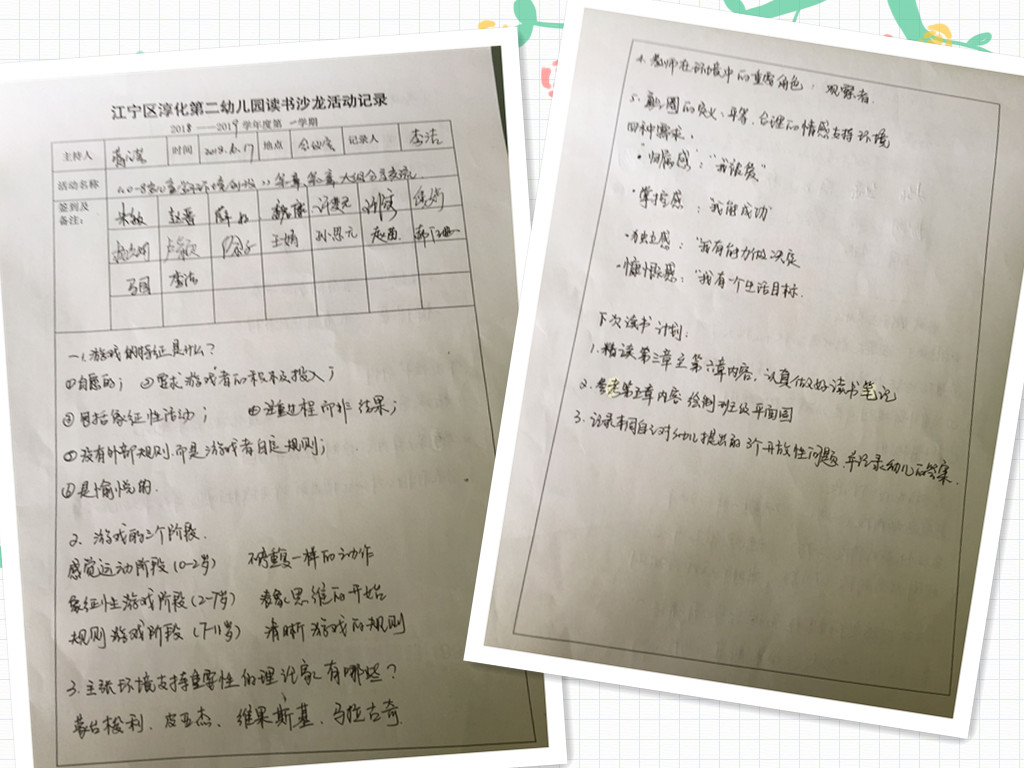 江宁区淳化第二幼儿园读书沙龙活动记录
2018——2019学年度第 一学期
主持人 时间 2018.10.17 地点 会议室 记录人 李洁
活动名称 《0-8岁儿童学习环境创设》第一章、第二章 大组分享交流
签到及 赵蓉 薛
备注: 王娟 孙思元
李洁
一、游戏的特征是什么?
①自愿的; ②要求游戏者的积极投入;
③包括象征性活动; ④注重过程而非结果;
⑤没有外部规则,而是游戏者自定规则;
⑥是愉悦的.
2. 游戏的三个阶段.
感觉运动阶段(0-2岁) 不停重复一样的动作
象征性游戏阶段(2-7岁) 表象思维的开始
规则游戏阶段(7-11岁) 清晰游戏的规则
3.主张环境支持重要性的理论家有哪些?
蒙台梭利、皮亚杰、维果斯基、马拉古奇
4.教师在环境中的重要角色:观察者.
5. 的定义、内容、合理的情感支持环境
四种需求:
·"归属感":"我能爱"
·掌控感:"我能成功"
·独立感:"我有能力做决定
·慷慨感:"我有一个生活目标.
下次读书计划:
1.精读第三章至第六章内容,认真做好读书笔记
2.参考第五章内容 绘制班级平面图
3.记录本周自己对幼儿提出的3个开放性问题,并记录幼儿的答案.